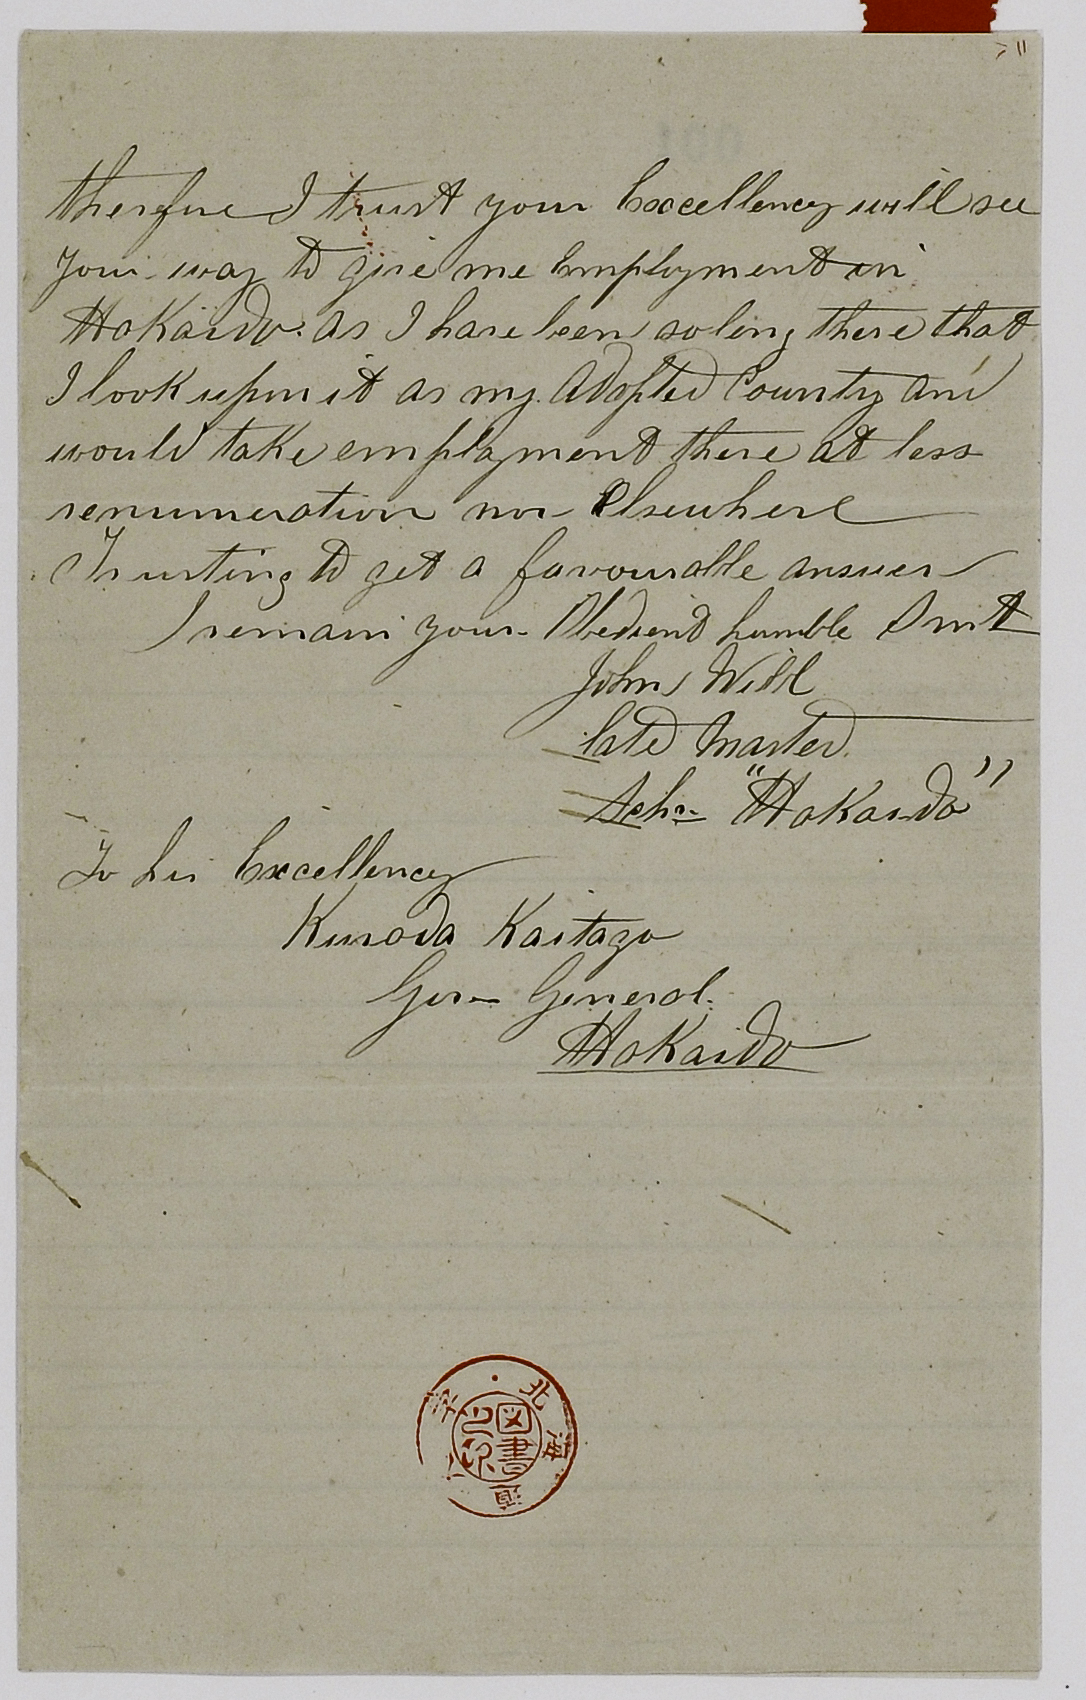 therefore I trust your Excellency will see
your way to give me Employment in
Hokaido. as I have been so long there that
I look upon it as my Adopted County and
would take employment there at less
renumeration nor Elsewhere
Trusting to get a favourable answer
I remain your Obedient humble Servt
John Will
late Master
Schr "Hokaido"
To his Excellency
Kuroda Kaitazo
Gov General
Hokaido
北海道
図書之